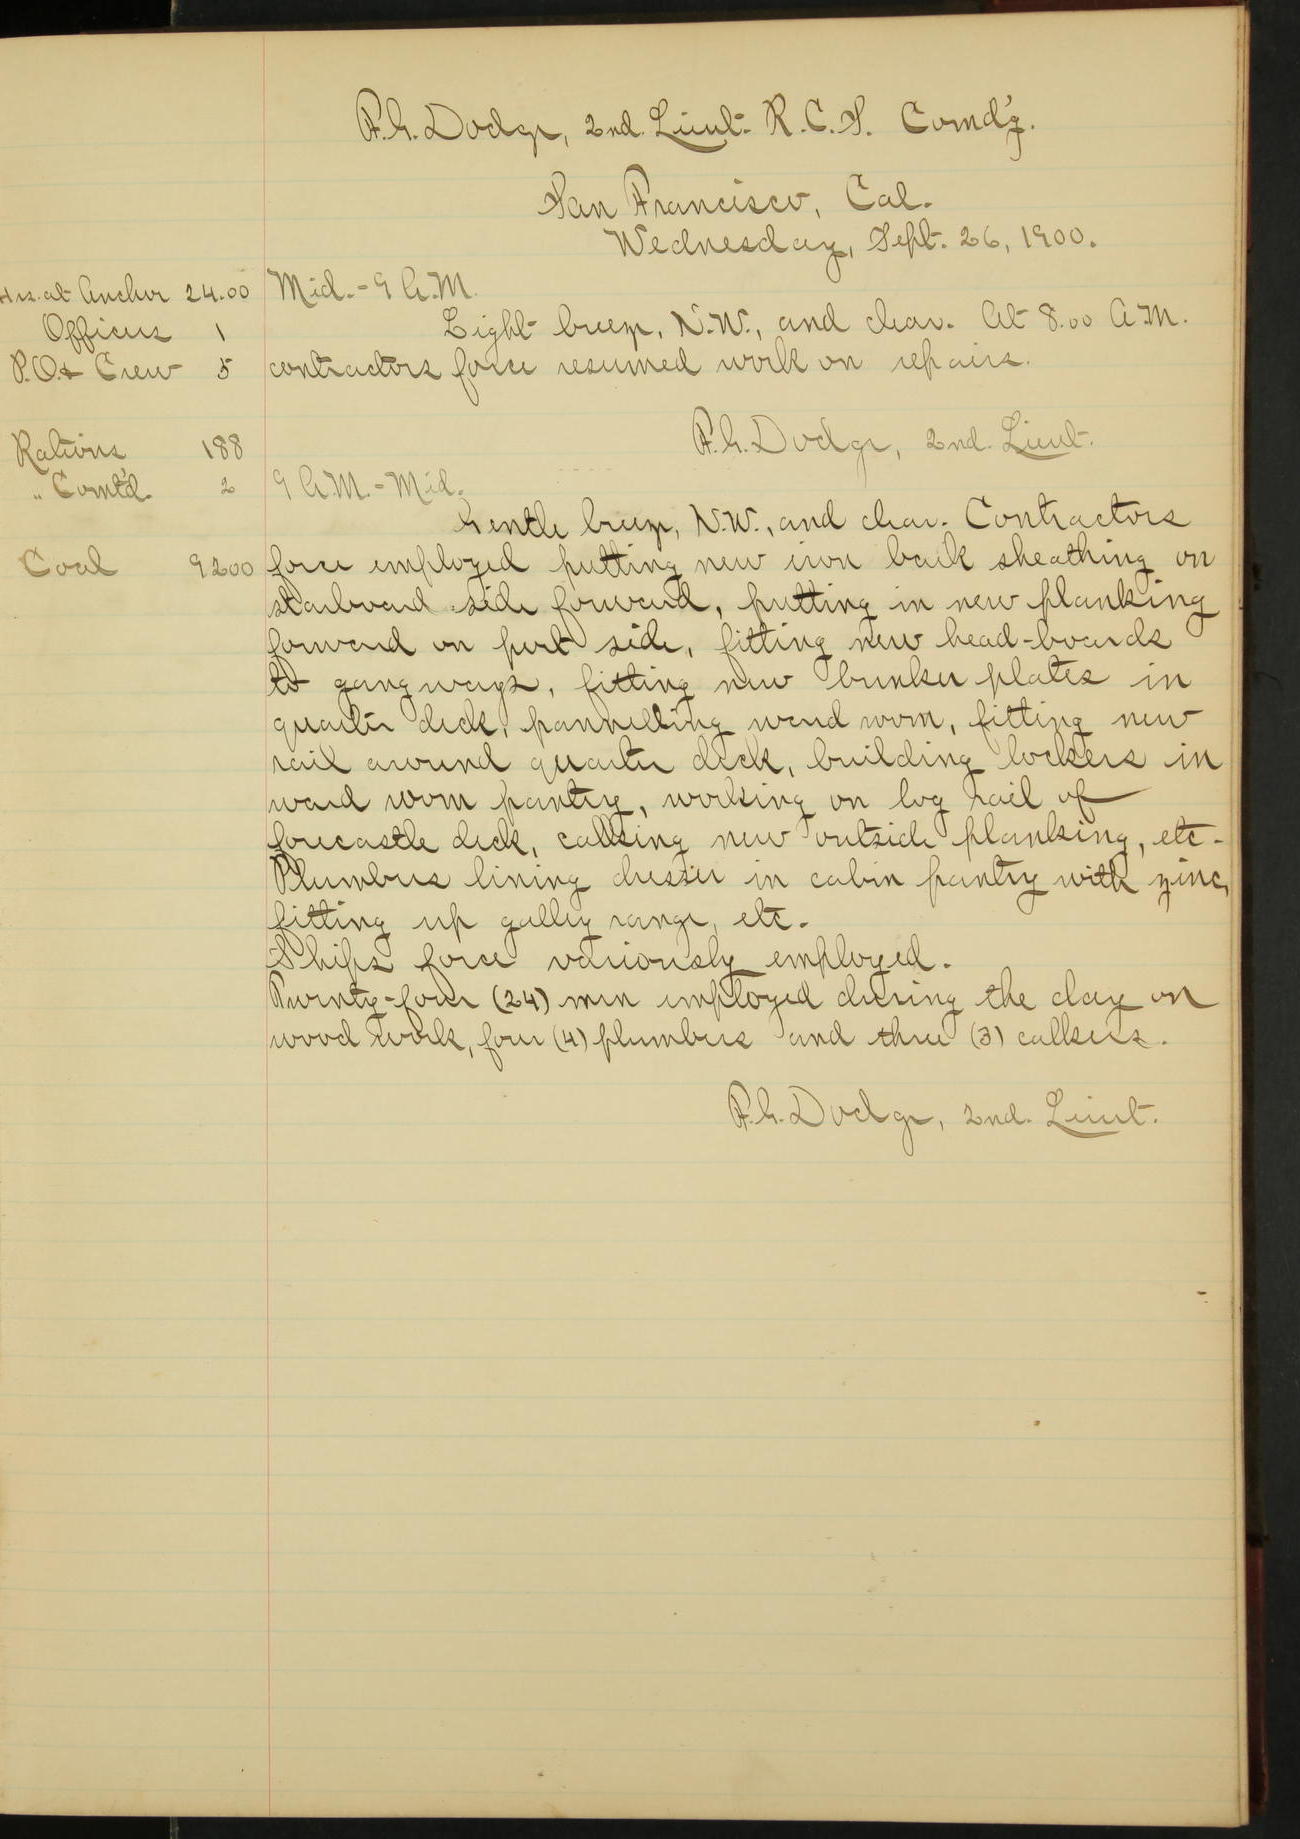 F.G. Dodge, 2nd. Lieut. R.C.S. Comd'g.
San Francisco, Cal.
Wednesday, Sept. 26, 1900.
Hrs. at Anchor 24.00
Officers 1
P.O. & Crew 5
Rations 188
" Comt'd. 2
Coal 9200
Mid. - 9 A.M.
Light breeze, N.W., and clear. At 8.00 A.M.
contractors force resumed work on repairs.
F.G. Dodge, 2nd. Lieut.
9 A.M. - Mid.
Gentle breeze, N.W., and clear. Contractors
force employed putting new iron bark sheathing on
starboard side forward, putting in new planking
forward on port side, fitting new head-boards
to gangways, fitting new bunker plates in
quarter deck, pannelling ward room, fitting new
rail around quarter deck, building lockers in
ward room pantry, working on log rail of
forecastle deck, calking new outside planking, etc.
Plumbers lining dresser in cabin pantry with zinc,
fitting up galley range, etc.
Ships force variously employed.
Twenty-four (24) men employed during the day on
wood work, four (4) plumbers and three (3) calkers.
F.G. Dodge, 2nd. Lieut.